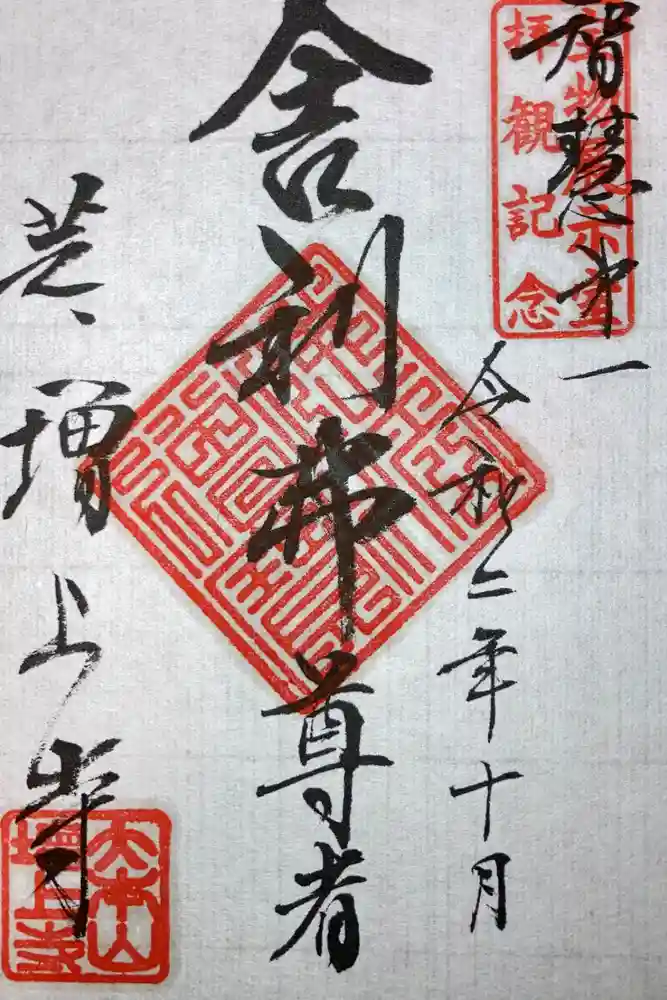 宝物展示室
拝観記念
智慧第一
令和二年十月
舎利弗尊者
芝、増上寺
大本山
増上寺